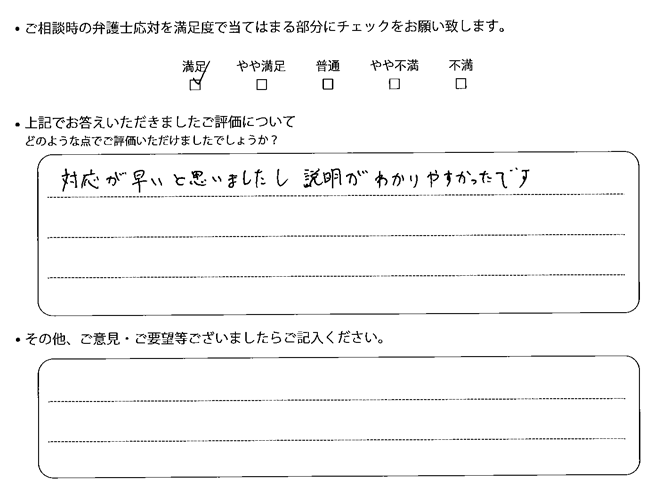 ・ご相談時の弁護士応対を満足度で当てはまる部分にチェックをお願い致します。
満足 やや満足 普通 やや不満 不満
☑ □ □ □ □
・上記でお答えいただきましたご評価について
どのような点でご評価いただけましたでしょうか？
対応が早いと思いましたし 説明がわかりやすかったです
・その他、ご意見・ご要望等ございましたらご記入ください。